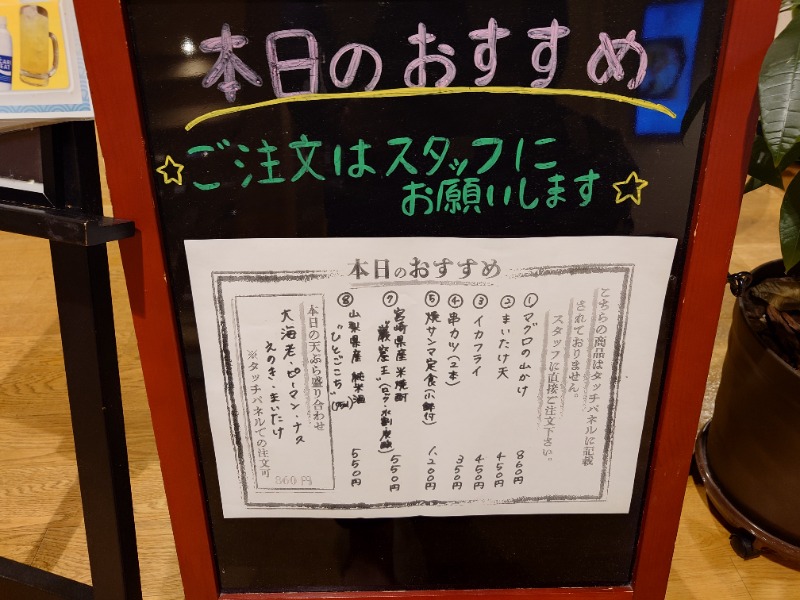 本日のおすすめ
ご注文はスタッフに
お願いします
本日のおすすめ
こちらの商品はタッチパネルに記載
されておりません。
スタッフに直接ご注文下さい。
①マグロの山かけ 860円
②まいたけ天 450円
③イカフライ 450円
④串カツ(2本) 350円
⑤焼サンマ定食(小鉢付) 1,200円
⑦宮崎県産 米焼酎
"巌窟王" 550円
⑧山梨県産 純米酒
"ひとごこち" 550円
本日の天ぷら盛り合わせ
大海老・ピーマン・ナス
えのき・まいたけ
※タッチパネルでの注文可
860円